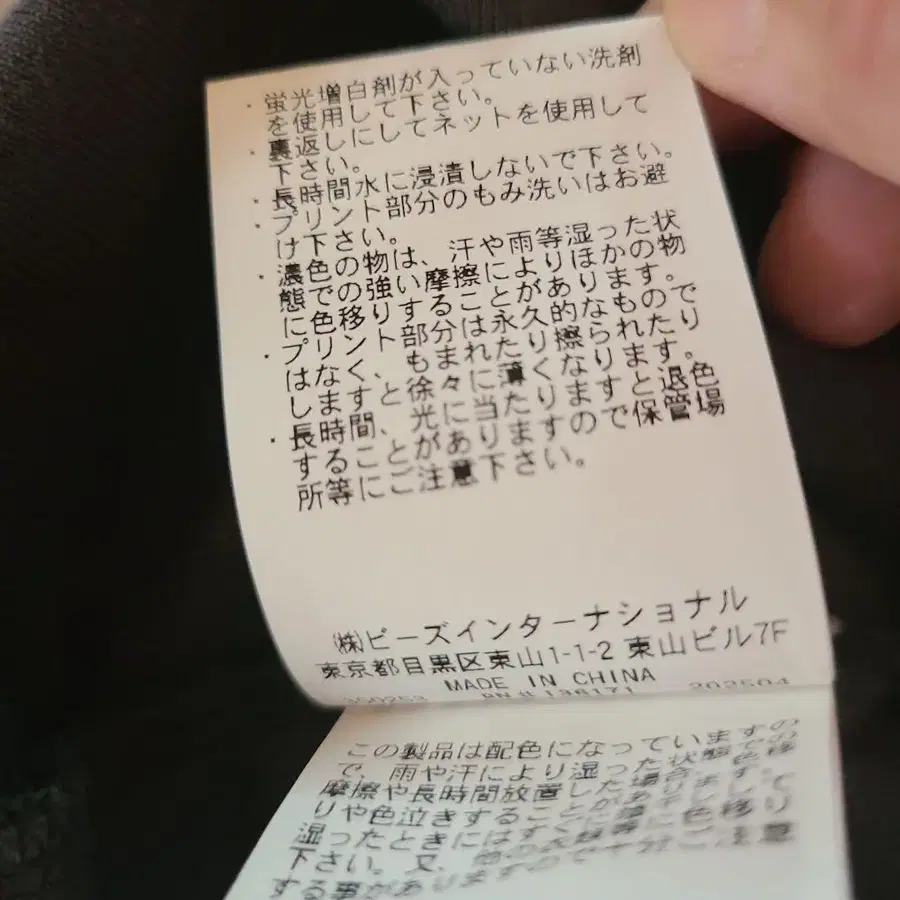 ・蛍光増白剤が入っていない洗剤
を使用して下さい。
・裏返しにしてネットを使用して
下さい。
・長時間水に浸漬しないで下さい。
・プリント部分のもみ洗いはお避
け下さい。
・濃色の物は、汗や雨等湿った状
態での強い摩擦によりほかの物
に色移りすることがあります。
・プリント部分は永久的なもので
はなく、もまれたり擦られたり
しますと徐々に薄くなります。
・長時間、光に当たりますと退色
することがありますので保管場
所等にご注意下さい。
㈱ビーズインターナショナル
東京都目黒区東山1-1-2 東山ビル7F
MADE IN CHINA
RN # 136171 202504
この製品は配色になっていますの
で、雨や汗により湿った状態での
摩擦や長時間放置した場合、色移
りや色泣きすることがあります。
湿ったときにはすぐに陰干しして
下さい。又、他の衣類等に色移り
する事がありますので十分ご注意